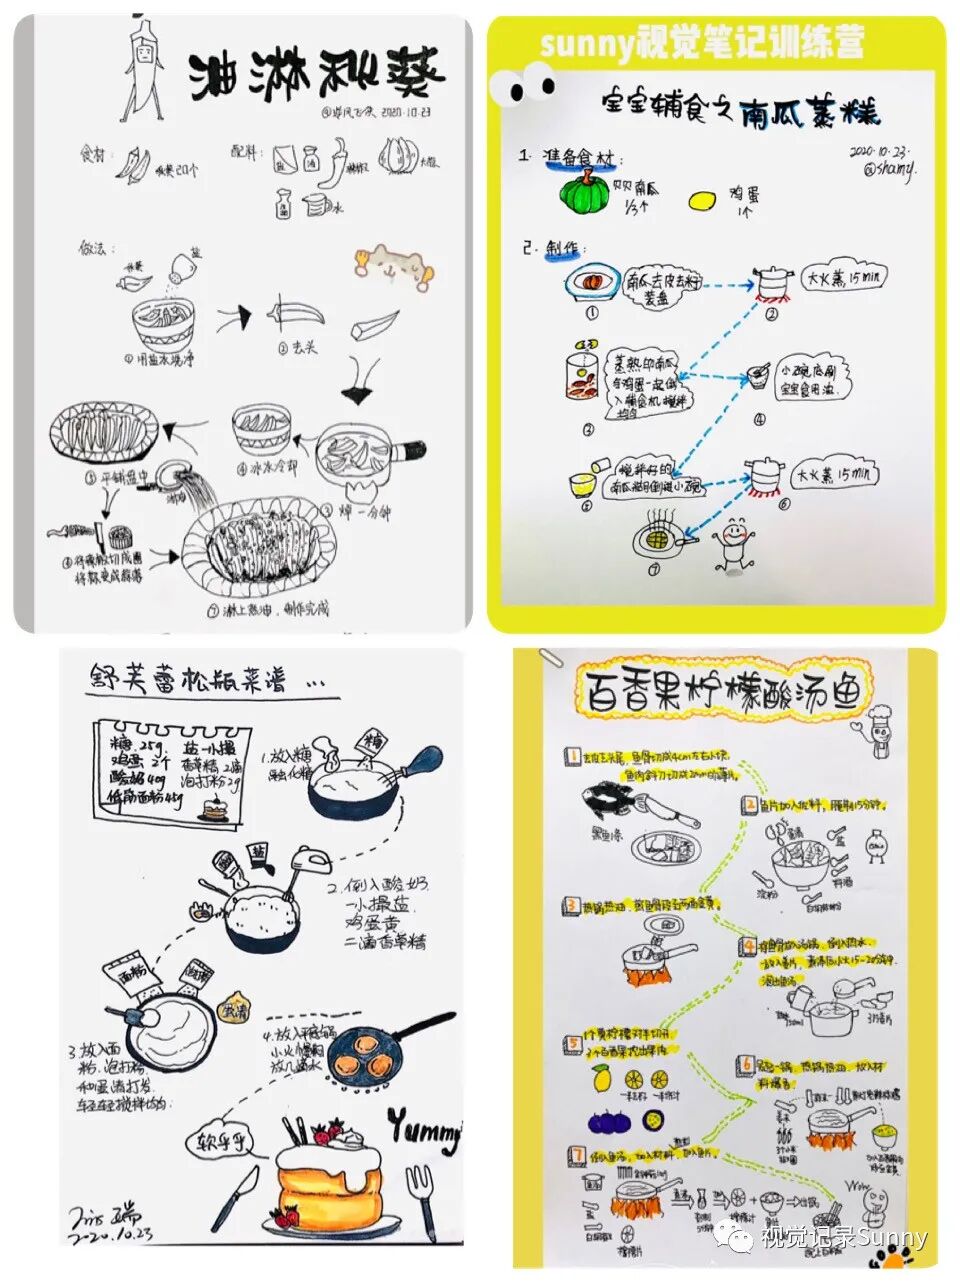 油淋秋葵
2020.10.23
食材:
秋葵20个
配料:
盐
油
辣椒
大蒜
水
做法:
秋葵
盐
①用盐水洗净
②去头
③焯一分钟
④冰水冷却
⑤平铺盘中
⑥将辣椒切成圈
⑦淋上热油,制作完成
sunny视觉笔记训练营
宝宝辅食之南瓜蒸糕
2020.10.23.
@shamy.
1. 准备食材:
贝贝南瓜
1/3个
鸡蛋
1个
2. 制作:
南瓜去皮去籽
装盘
①
大火蒸15min
②
蒸熟的南瓜
与鸡蛋一起倒
入辅食机搅拌
均匀
③
小碗底刷
宝宝食用油.
④
搅拌好的
南瓜糊倒进小碗
⑤
大火蒸15min
⑥
⑦
舒芙蕾松瓶菜谱 ...
糖.25g. 盐一小撮
鸡蛋2个 香草精2滴
酸奶40g 泡打粉2g
低筋面粉45g
糖
1.放入糖
融化糖
酸奶
盐
2.倒入酸奶.
一小撮盐.
鸡蛋黄
二滴香草精
面粉
泡打粉
蛋清
3.放入面
粉.泡打粉
和蛋清打发.
轻轻搅拌均匀.
4.放入平底锅
小火慢焖
放几滴水
软乎乎
Yummy
2020.10.23
百香果柠檬酸汤鱼
1
去皮去头尾,鱼骨切成4cm左右小块.
鱼肉斜刀切成2cm的薄片.
黑鱼1条
2
鱼片加入佐料,腌制15分钟.
蛋清
盐
料酒
淀粉
白胡椒粉
3
热锅热油,煎鱼骨段至两面金黄.
4
将鱼骨放入汤锅,倒入热水.
放入姜片,煮沸后小火15-20分钟.
滤出鱼汤
3片姜片
5
1个黄柠檬对半切开
2个百香果挖出果肉
6
另起一锅,热锅热油,放入材
料爆香
7
倒入鱼汤,加入材料,加入鱼片,
柠檬片
Wow
视觉记录Sunny